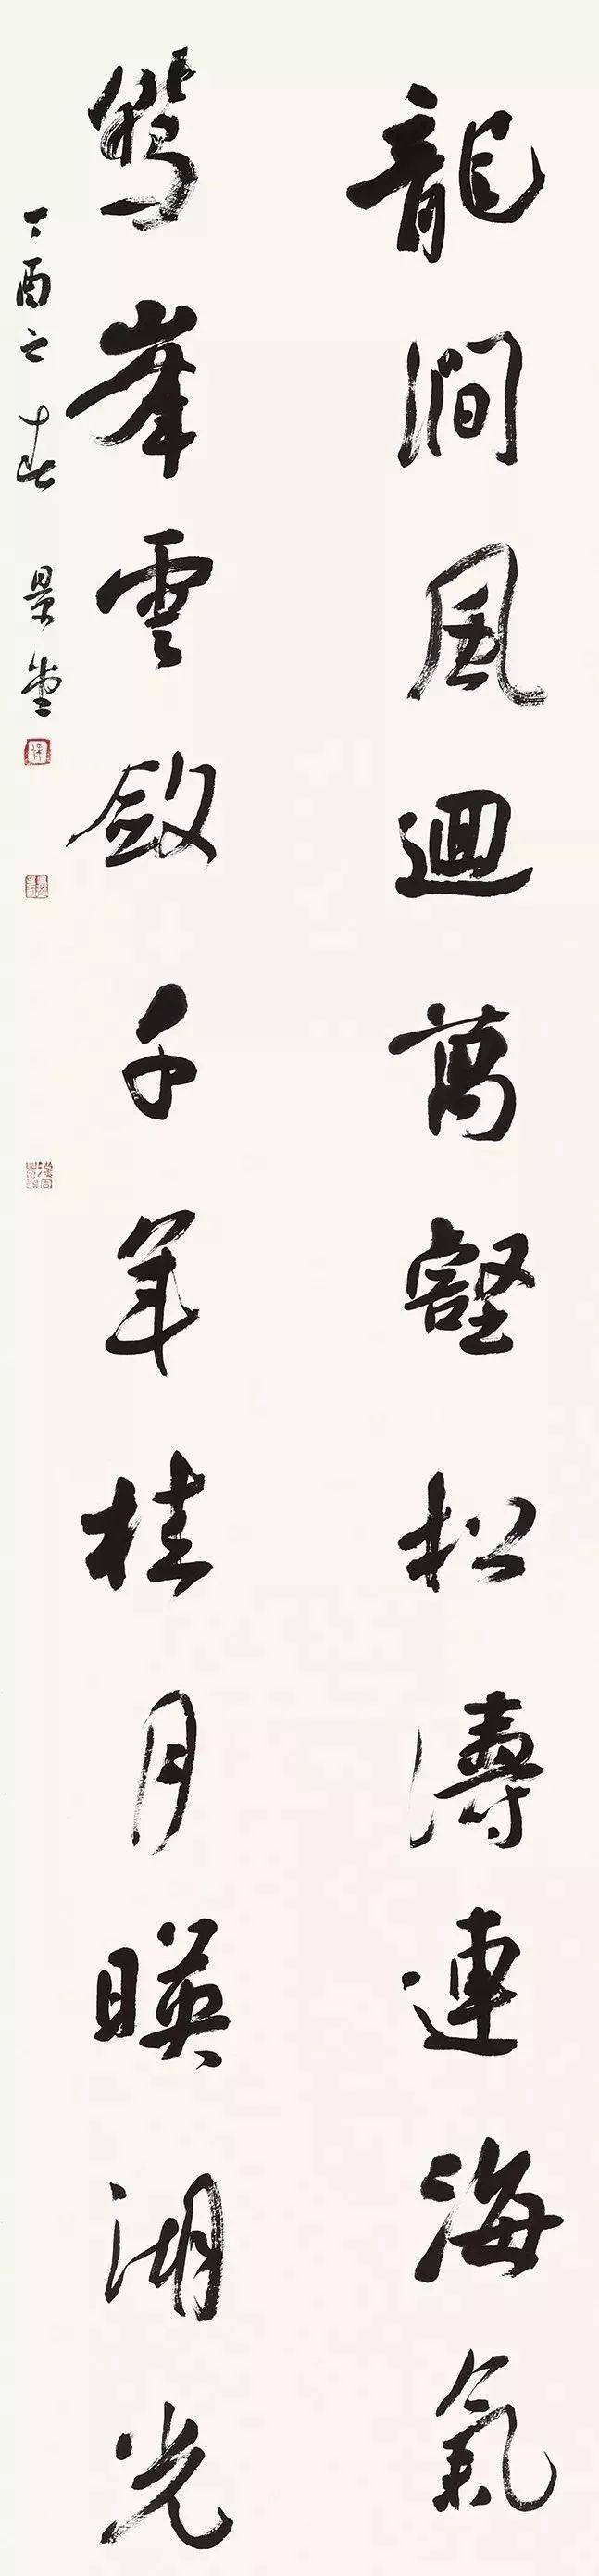 龍澗風迴萬壑松濤連海氣
鷲峯雲斂千年桂月暎湖光
丁酉之春 景堂